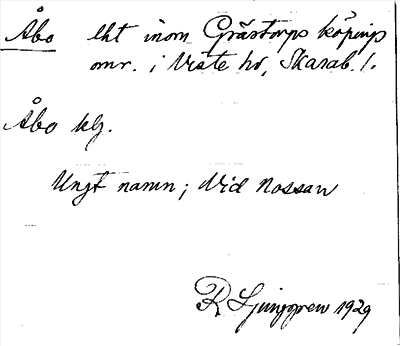 Åbo lht inom Grästorps köpings
omr. i Viste hd, Skarab. l.
Åbo klg.
Ungt namn; Vid Nossan
R Ljunggren 1929